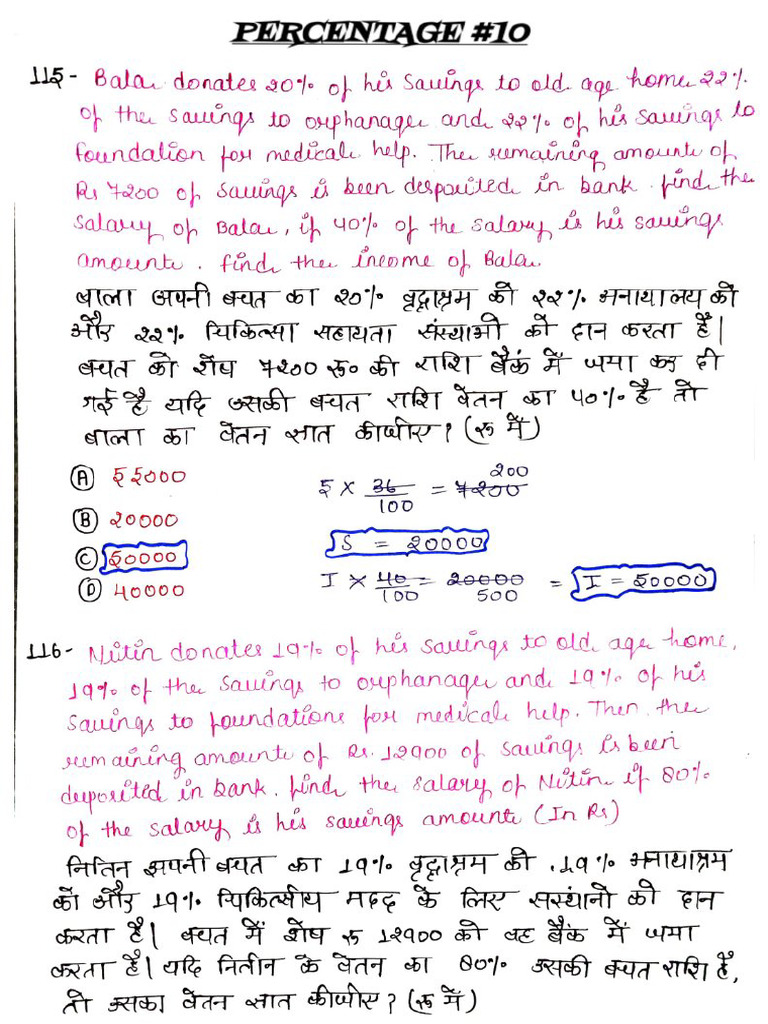 PERCENTAGE #10
115- Bala donates 20% of his savings to old age home 22%
of the savings to orphanage and 22% of his savings to
foundation for medical help. The remaining amount of
Rs 7200 of savings is been desposited in bank. find the
salary of Bala, if 40% of the salary is his savings
amount. find the income of Bala.
बाला अपनी बचत का 20% वृद्धाश्रम को 22% अनाथालय को
और 22% चिकित्सा सहायता संस्थाओ को दान करता है|
बचत की शेष 7200 रू० की राशि बैंक में जमा कर दी
गई है यदि उसकी बचत राशि वेतन का 40% है तो
बाला का वेतन ज्ञात कीजीए? (रू में)
Ⓐ 55000
Ⓑ 20000
Ⓒ 50000
Ⓓ 40000
200
S × 36/100 = 7200
S = 20000
I × 40/100 = 20000 = I = 50000
500
116- Nitin donates 19% of his savings to old age home,
19% of the savings to orphanage and 19% of his
savings to foundations for medical help. Then the
remaining amount of Rs. 12900 of savings is been
deposited in bank. find the salary of Nitin if 80%
of the salary is his savings amount (In Rs)
नितिन अपनी बचत का 19% वृद्धाश्रम को, 19% अनाथाश्रम
को और 19% चिकित्सीय मदद के लिए संस्थानो को दान
करता है| बचत में शेष रू 12900 को वह बैंक में जमा
करता है| यदि नितीन के वेतन का 80% उसकी बचत राशि है,
तो उसका वेतन ज्ञात कीजीए? (रू में)